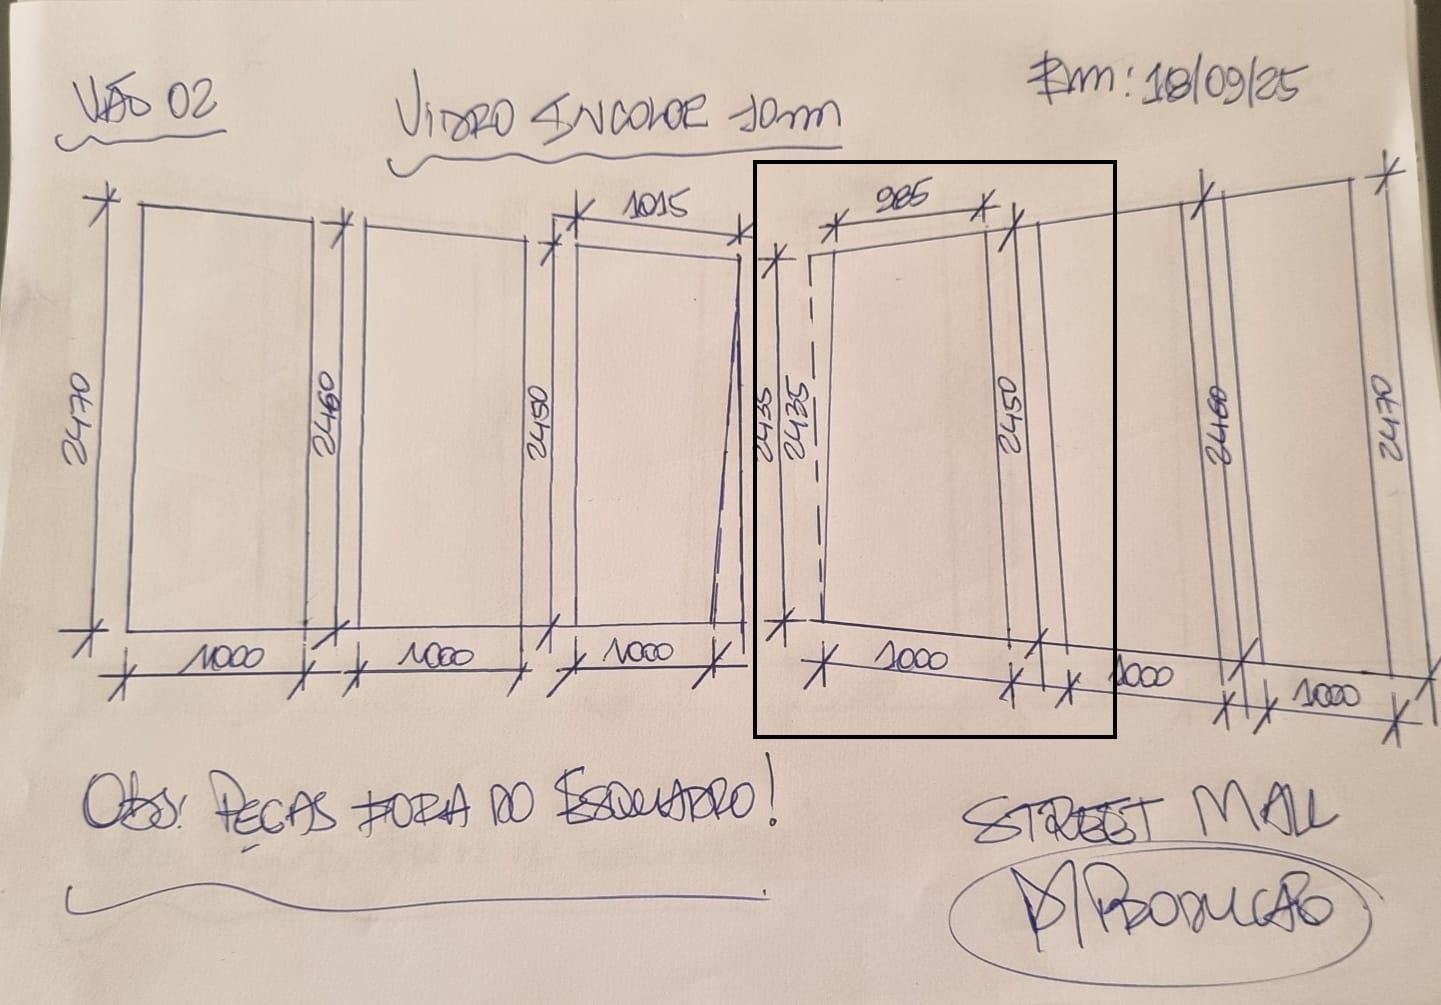 VÃO 02
VIDRO INCOLOR 10mm
Em: 18/09/25
1015
985
2470
2460
2450
2435
2435
2450
2460
2470
1000
1000
1000
1000
1000
1000
Obs: PEÇAS FORA DO ESQUADRO!
STREET MALL
P/PRODUÇÃO